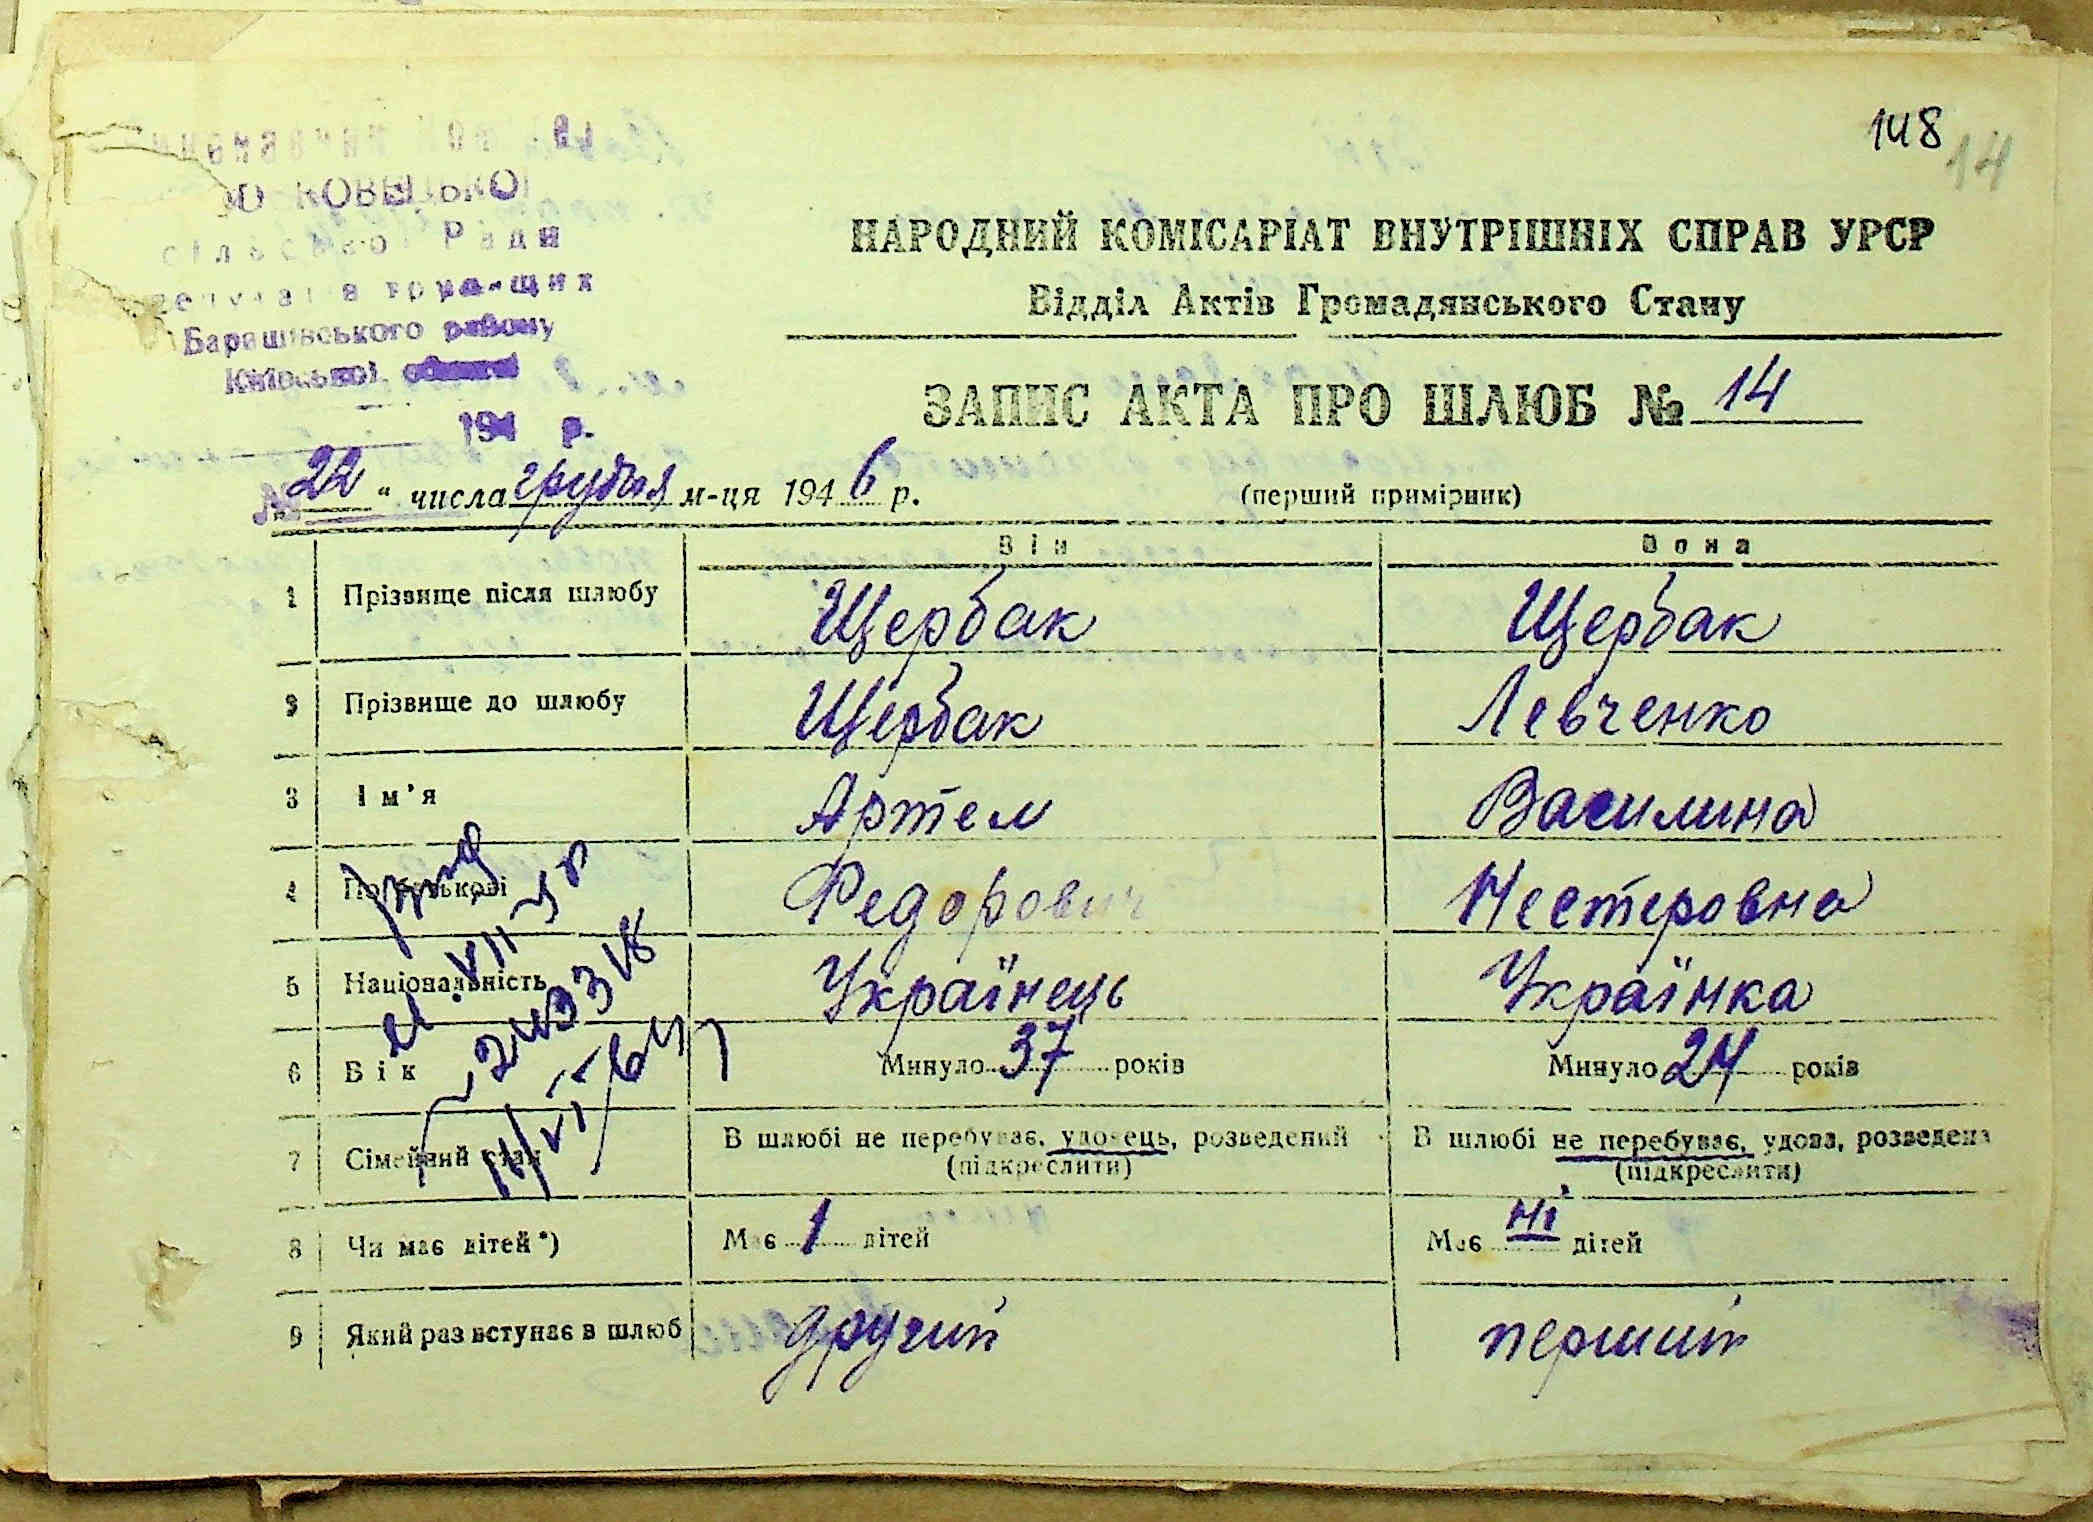 148
14
сільської Ради
депутатів трудящих
Баришівського району
Київської області
194 р.
№
НАРОДНИЙ КОМІСАРІАТ ВНУТРІШНІХ СПРАВ УРСР
Відділ Актів Громадянського Стану
ЗАПИС АКТА ПРО ШЛЮБ № 14
22 " числа грудня м-ця 1946 р. (перший примірник)
Він Вона
1 Прізвище після шлюбу Щербак Щербак
2 Прізвище до шлюбу Щербак Левченко
3 Ім'я Артем Василина
4 По батькові Федорович Нестеровна
5 Національність Українець Українка
6 Вік Минуло 37 років Минуло 24 років
7 Сімейний стан В шлюбі не перебуває, удовець, розведений В шлюбі не перебуває, удова, розведена
(підкреслити) (підкреслити)
8 Чи має дітей*) Має 1 дітей Має ні дітей
9 Який раз вступає в шлюб другий перший